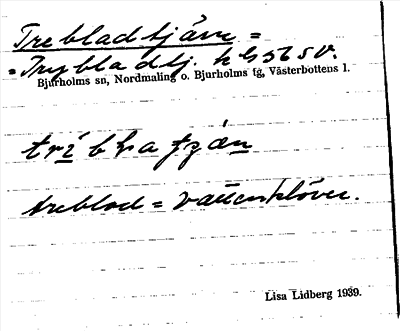 Trebladtjärn =
= Trybladtj. hbs56SV.
Bjurholms sn, Nordmaling o. Bjurholms tg, Västerbottens l.
treblad = vattenklöver.
Lisa Lidberg 1939.